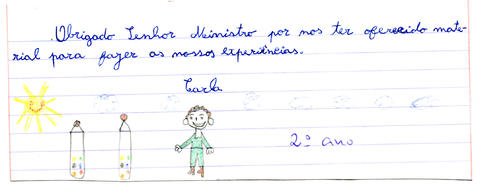 Obrigado Senhor Ministro por nos ter oferecido mate-
rial para fazer as nossas experiências.
Carla
2º ano